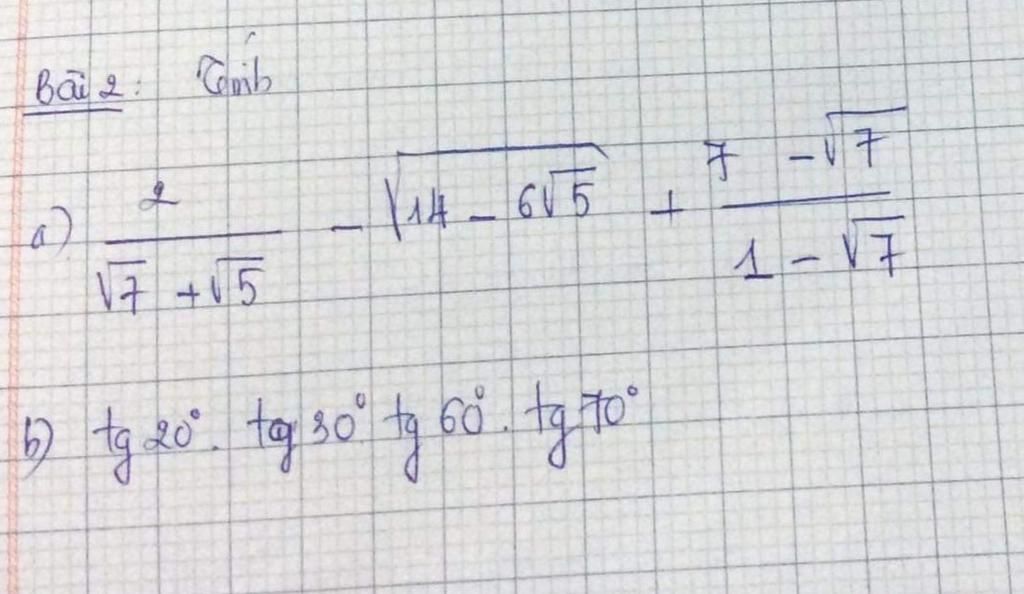 Bài 2: Tính
a) \frac{2}{\sqrt{7} + \sqrt{5}} - \sqrt{14 - 6\sqrt{5}} + \frac{7 - \sqrt{7}}{1 - \sqrt{7}}
b) tg 20°. tg 30° tg 60°. tg 70°